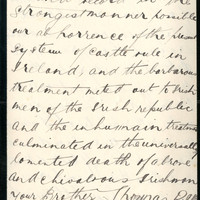 strongest manner possible
our abhorrence of the
system of castle rule in
Ireland, and the barbarous
treatment meted out to Irish
men of the Irish republic
and the inhuman treatment
culminated in the universally
lamented death of a brave
and chivalrous Irishman
your Brother Thomas